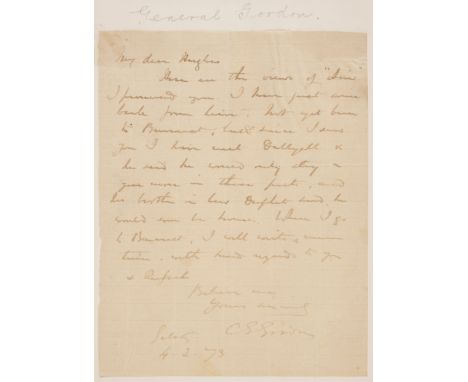 General Gordon.
My dear Hughes
Here are the views of
I promised you. I have just come
back from him. Not yet been
to, but since I saw
you I have met Dalzell &
he said he would only stay a
year more in these parts, and
his brother in law said he
would soon be home. When I go
to, I will write
him, with kind regards to you
&
Believe me
Yours sincerely
C E Gordon
Galatz
4-2-73